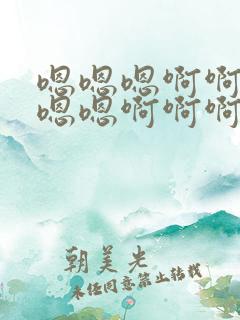 嗯嗯嗯啊啊
嗯嗯啊啊啊
朝美光
未经同意禁止转载